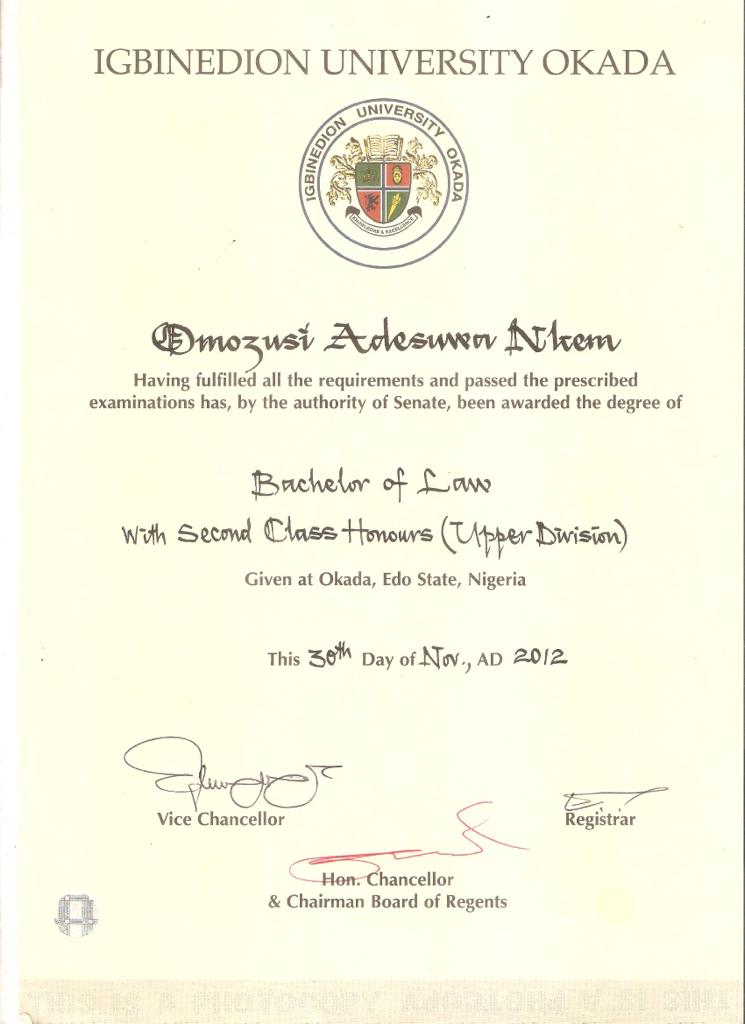 IGBINEDION UNIVERSITY OKADA
IGBINEDION UNIVERSITY OKADA
KNOWLEDGE & EXCELLENCE
Omozusi Adesuwa Nkem
Having fulfilled all the requirements and passed the prescribed
examinations has, by the authority of Senate, been awarded the degree of
Bachelor of Law
With Second Class Honours (Upper Division)
Given at Okada, Edo State, Nigeria
This 30th Day of Nov., AD 2012
Vice Chancellor
Registrar
Hon. Chancellor
& Chairman Board of Regents
THIS IS A PHOTOCOPY
THIS IS A PHOTOCOPY